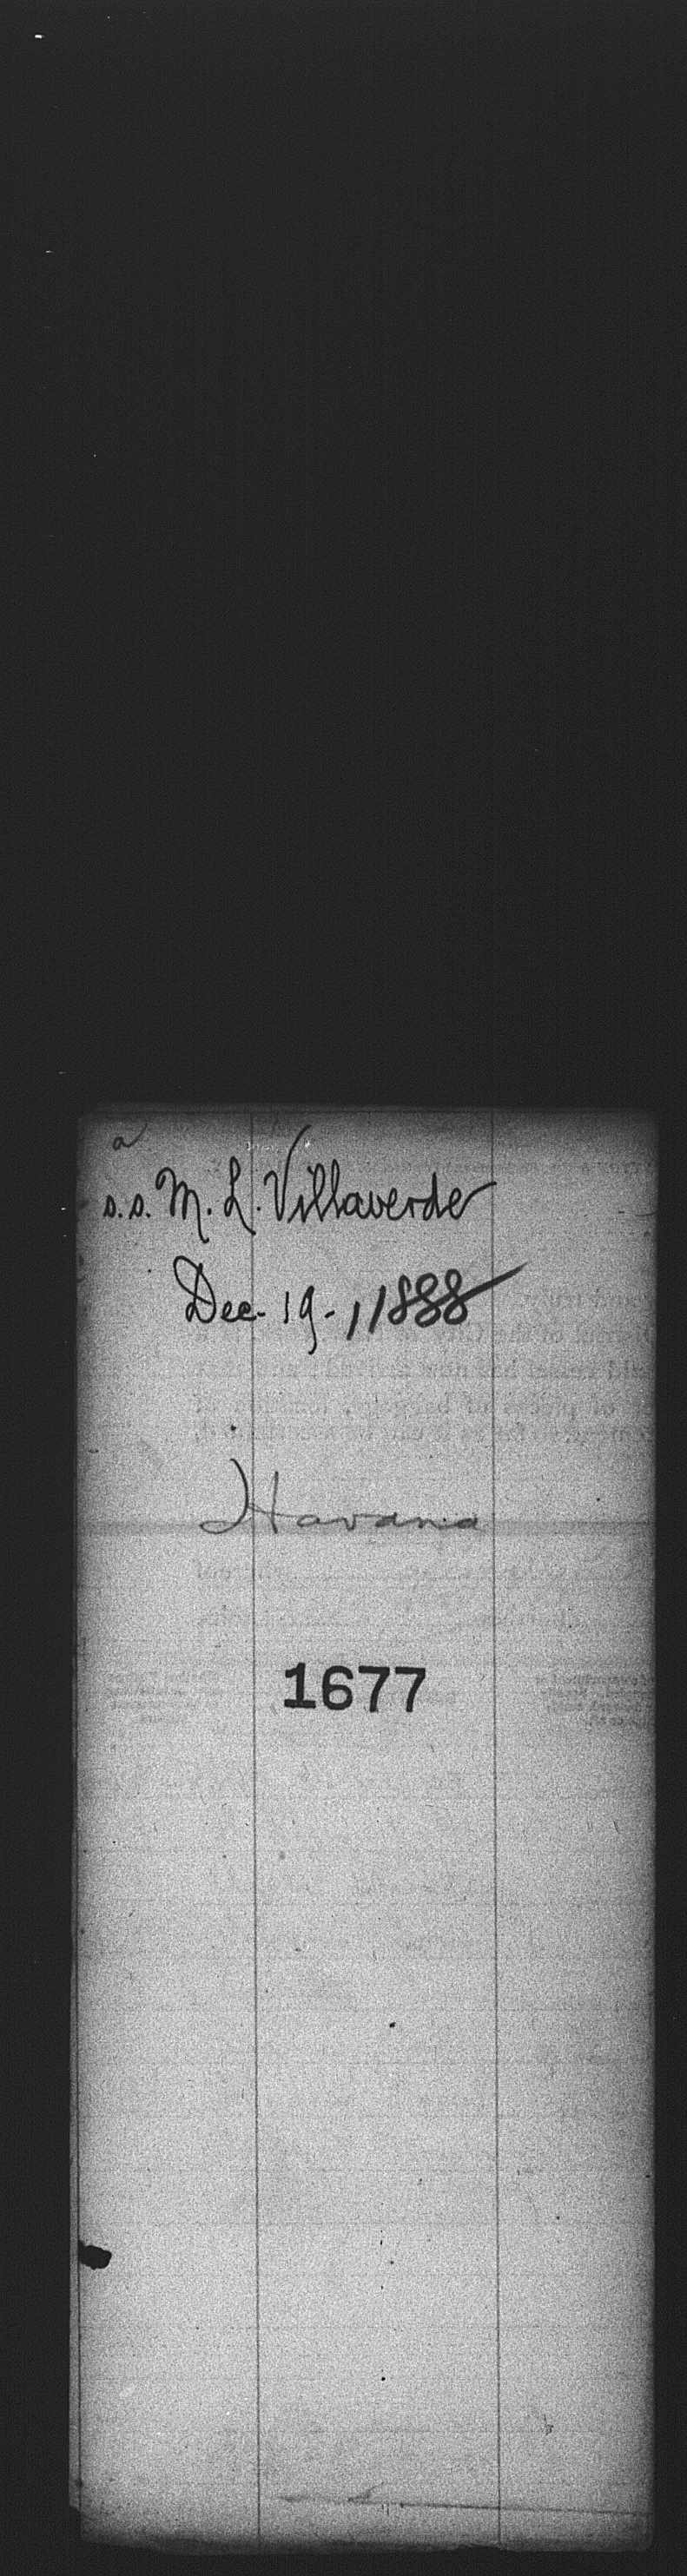 a
s.s. M. L. Villaverde
Dec. 19-, 1888
Havana
1677